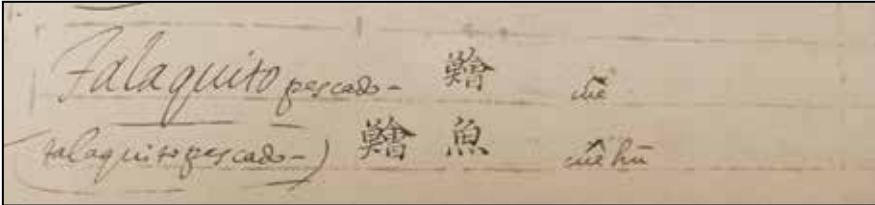 Talaquito pescado- 鱠 cuê
talaquito pescado-) 鱠 魚 cuê hū